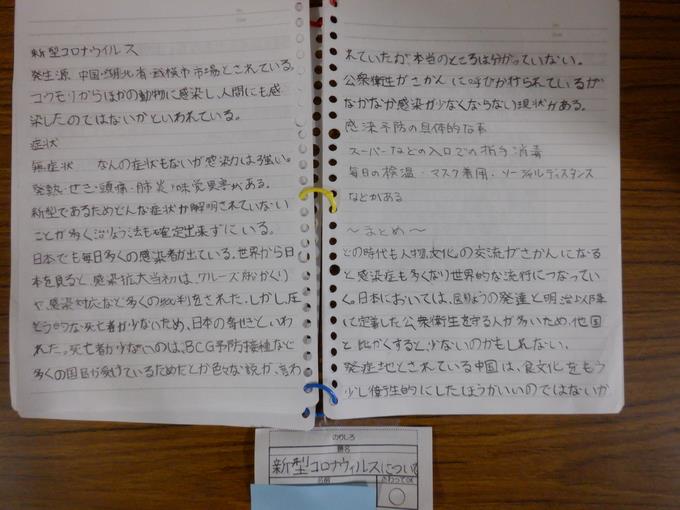 新型コロナウイルス
発生源 中国・湖北省・武漢市市場とされている。
コウモリからほかの動物に感染し、人間にも感
染したのではないかといわれている。
症状
無症状 なんの症状もないが感染力は強い。
発熱・せき・頭痛・肺炎・味覚異常がある。
新型であるためどんな症状か解明されていない
ことが多く治りょう法も確定出来ずにいる。
日本でも毎日多くの感染者が出ている。世界から日
本を見ると、感染拡大当初は、クルーズ船かくり
や感染対応など多くの批判をされた。しかし、圧
とう的な死亡者が少ないため、日本の奇せきといわ
れた。死亡者が少ないのは、BCG予防接種など
多くの国民が受けているためだとか色々な説が、言わ
れていたが、本当のところは分かっていない。
公衆衛生がさかんに呼びかけられているが
なかなか感染が少なくならない現状がある。
感染予防の具体的な事
スーパーなどの入口での指手消毒
毎日の検温・マスク着用・ソーシャルディスタンス
などがある
～まとめ～
どの時代も人物、文化の交流がさかんになる
と感染症も多くなり世界的な流行につなってい
く。日本においては、医りょうの発達と明治以降
に定着した公衆衛生を守る人が多いため、他国
と比かくすると、少ないのかもしれない。
発症地とされている中国は、食文化をもう
少し衛生的にしたほうがいいのではないか
のりしろ
題名
新型コロナウィルスについて
名前
おわってOK
○